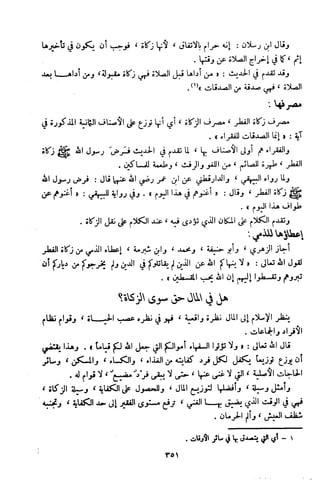 وقال ابن رسلان : إنه حرام بالاتفاق ، لأنها زكاة ، فوجب أن يكون في تأخيرها
إثم ، كما في إخراج الصلاة عن وقتها .
وقد تقدم في الحديث : « من أداها قبل الصلاة فهي زكاة مقبولة ، ومن أداهــا بعد
الصلاة ، فهي صدقة من الصدقات »(١) .
مصرفها :
مصرف زكاة الفطر ، مصرف الزكاة ، أي أنها توزع على الأصناف الثمانية المذكورة في
آية : « إنما الصدقات للفقراء » .
والفقراء هم أولى الأصناف بها ، لما تقدم في الحديث فَرَضَ رسول الله ﷺ زكاة
الفطر ، طهرة للصائم ، من اللغو والرفث ، وطعمة للمساكين .
ولما رواه البيهقي ، والدارقطني عن ابن عمر رضي الله عنهما قال : فرض رسول الله
ﷺ زكاة الفطر ، وقال : « أغنوهم في هذا اليوم » . وفي رواية للبيهقي : « أغنوهم عن
طواف هذا اليوم » .
وتقدم الكلام على المكان الذي تؤدى فيه ، عند الكلام على نقل الزكاة .
إعطاؤها للذمي :
أجاز الزهري ، وأبو حنيفة ، ومحمد ، وابن شبرمة ، إعطاء الذمي من زكاة الفطر
لقول الله تعالى : « لا ينهاكم الله عن الذين لم يقاتلوكم في الدين ولم يخرجوكم من دياركم أن
تبروهم وتقسطوا إليهم إن الله يحب المقسطين » .
هل في المال حق سوى الزكاة؟
ينظر الإسلام إلى المال نظرة واقعية ، فهو في نظره عصب الحيــاة ، وقوام نظام
الأفراد والجماعات .
قال الله تعالى : « ولا تؤتوا السفهاء أموالكم التي جعل الله لكم قياماً » . وهذا يقتضي
أن يوزع توزيعاً يكفل لكل فرد كفايته من الغذاء ، والكساء ، والمسكن ، وسائر
الحاجات الأصلية ، التي لا غنى عنها ، حتى لا يبقى فرد مضيع ، لا قوام له .
وأمثل وسيلة ، وأفضلها لتوزيع المال ، وللحصول على الكفاية ، وسيلة الزكاة ،
فهي في الوقت الذي يضيق بهــا الغني ، ترفع مستوى الفقير إلى حد الكفاية ، وتجنبه
شظف العيش ، وألم الحرمان .
١ - أي التي يتصدق بها في سائر الأوقات .
٣٥١